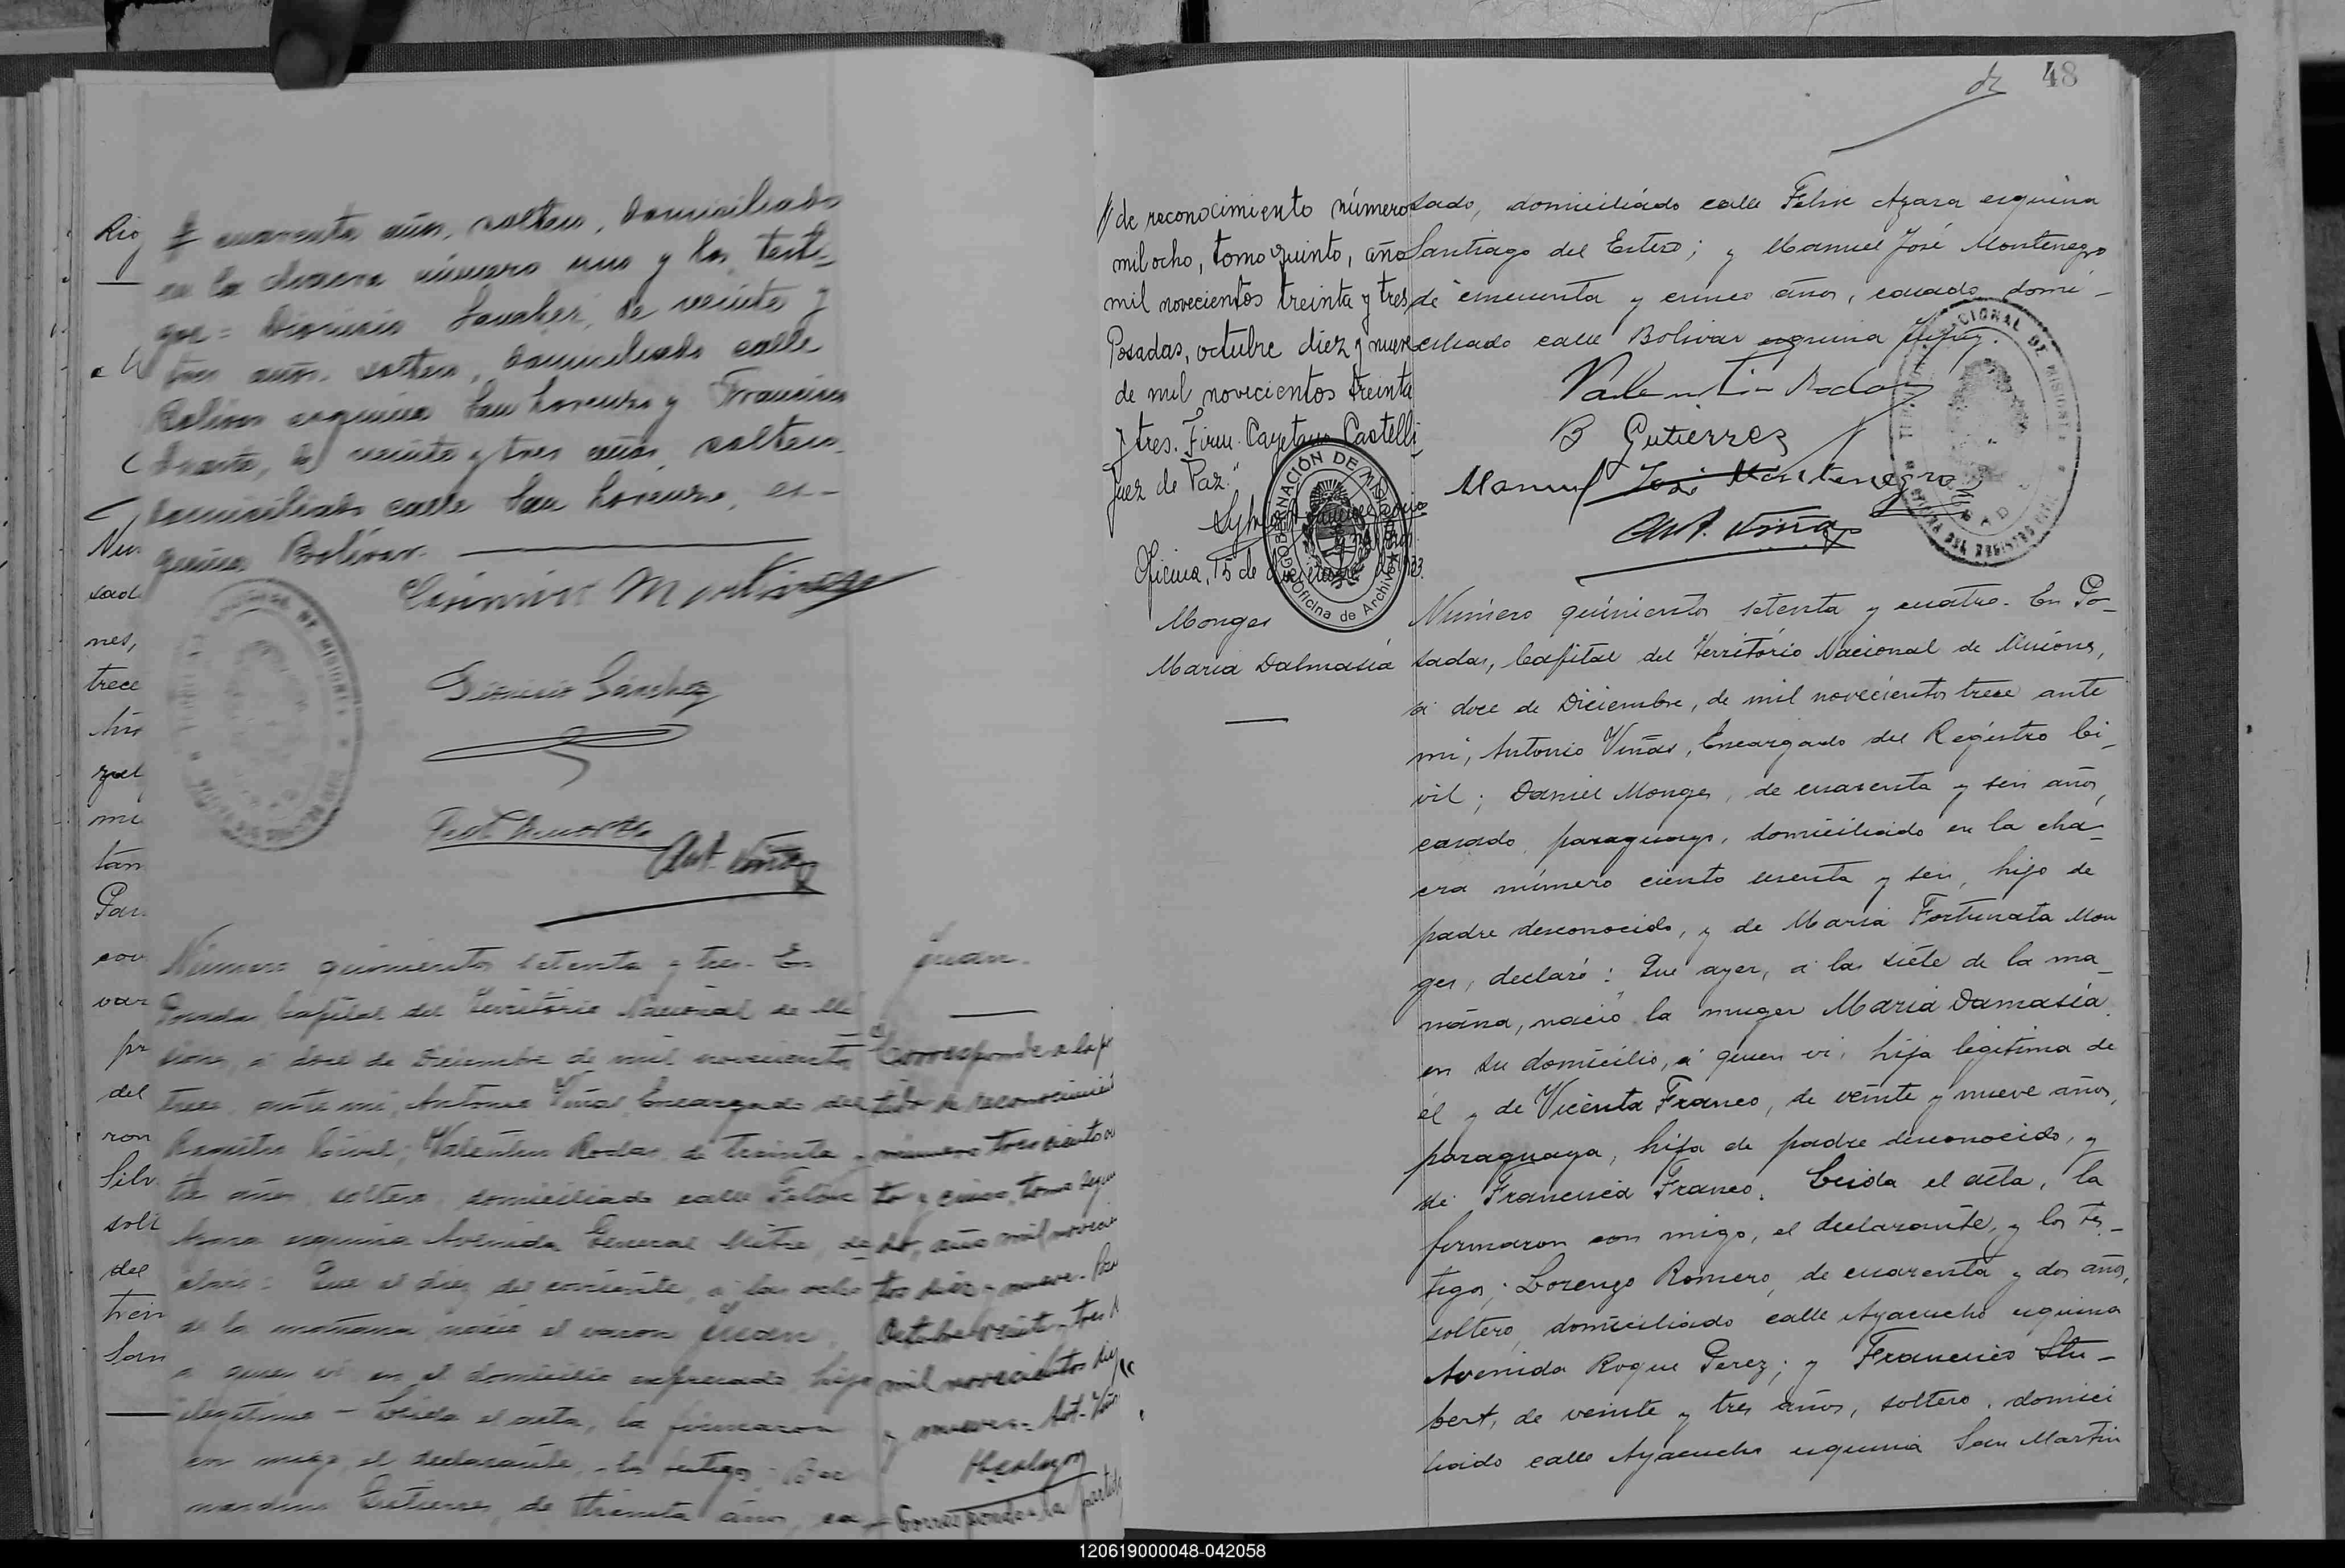 Rio
# cuarenta años, soltero, domiciliado
en la chacra número uno y los testi-
gos = Dionisio Sanchez, de veinte y
tres años. soltero, domiciliado calle
Bolivar esquina San Lorenzo y Francisco
de veinte y tres años, soltero.
domiciliado calle San Lorenzo, es-
quina Bolívar.
Casimiro Martinez
Dionisio Sánchez
Ant. Viñas
Número quinientos setenta y tres. En
Posadas, Capital del Território Nacional de Mi-
siones, a doce de Diciembre de mil novecientos
trece, ante mi, Antonio Viñas, Encargado del
Registro Civil; Valentin Rodas, de treinta y
años, soltero, domiciliado calle Felix
Azara esquina Avenida General Mitre, de-
claró: Que el diez del corriente, a las ocho
de la mañana, nació el varon Juan,
a quien vi en el domicilio expresado, hijo
ilegítimo - Leida el acta, la firmaron
con migo, el declarante, y los testigos; Ber-
nardino Gutierrez, de treinta años, ca-
Juan.
Corresponde a la par
tida de reconocimien
número tres ciento
to y cinco, tomo segun
do, año mil novecien
tos diez y nueve. Po
Octubre veinte y tres
mil novecientos diez
y nueve. Ant. Viñas
Corresponde a la partida
48
// de reconocimiento número
mil ocho, tomo quinto, año
mil novecientos treinta y tres
Posadas, octubre diez y nueve
de mil novecientos treinta
y tres. Firm. Cayetano Castelli
Juez de Paz."
Oficina, 15 de
GOBERNACIÓN DE MISIONES
Oficina de Archivo
sado, domiciliado calle Felix Azara esquina
Santiago del Estero; y Manuel José Montenegro
de cincuenta y cinco años, casado, domi-
ciliado calle Bolivar esquina
Valentin Rodas
B Gutierrez
Manuel José Montenegro
Ant. Viñas
Monges
Maria Dalmasia
Número quinientos setenta y cuatro. En Po-
sadas, Capital del Território Nacional de Misiones,
a doce de Diciembre, de mil novecientos trece ante
mi, Antonio Viñas, Encargado del Registro Ci-
vil; Daniel Monges, de cuarenta y seis años,
casado, paraguayo, domiciliado en la cha-
cra número ciento sesenta y seis, hijo de
padre desconocido, y de Maria Fortunata Mon
ges, declaró: Que ayer, a las siete de la ma-
ñana, nació la muger Maria Damasia.
en su domicilio, á quien vi, hija legítima de
él y de Vicenta Franco, de veinte y nueve años,
paraguaya, hija de padre desconocido, y
de Francisca Franco. Leida el acta, la
firmaron con migo, el declarante, y los tes-
tigos; Lorenzo Romero, de cuarenta y dos años,
soltero, domiciliado calle Ayacucho esquina
Avenida Roque Perez; y Francisco Stu-
bert, de veinte y tres años, soltero, domici
liado calle Ayacucho esquina San Martin
120619000048-042058